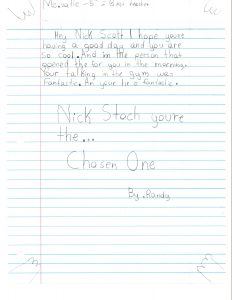 Hey Nick Scott I hope youre
having a good day and you are
so cool. And im the person that
opened the for you in the morning.
Your talking in the gym was
fantastic. An your lie a fantastic.
Nick Stoch youre
the...
Chosen One
By. Randy